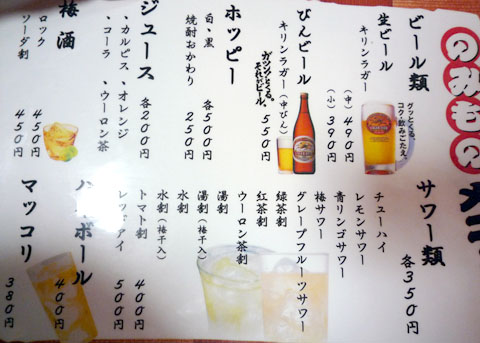 のみもの
ビール類
生ビール
キリンラガー
(中) 490円
(小) 390円
グッとくる、
コク・飲みごたえ。
びんビール
キリンラガー(中びん)
550円
ガツンとくる。
それがビール。
ホッピー
白・黒 各500円
焼酎おかわり 250円
ジュース 各200円
、カルピス、オレンジ
、コーラ 、ウーロン茶
梅酒
ロック 450円
ソーダ割 450円
サワー類 各350円
チューハイ
レモンサワー
青リンゴサワー
梅サワー
グレープフルーツサワー
緑茶割
紅茶割
ウーロン茶割
湯割
湯割(梅干入)
水割
水割(梅干入)
トマト割 400円
レッドアイ 500円
ハイボール 400円
マッコリ 380円